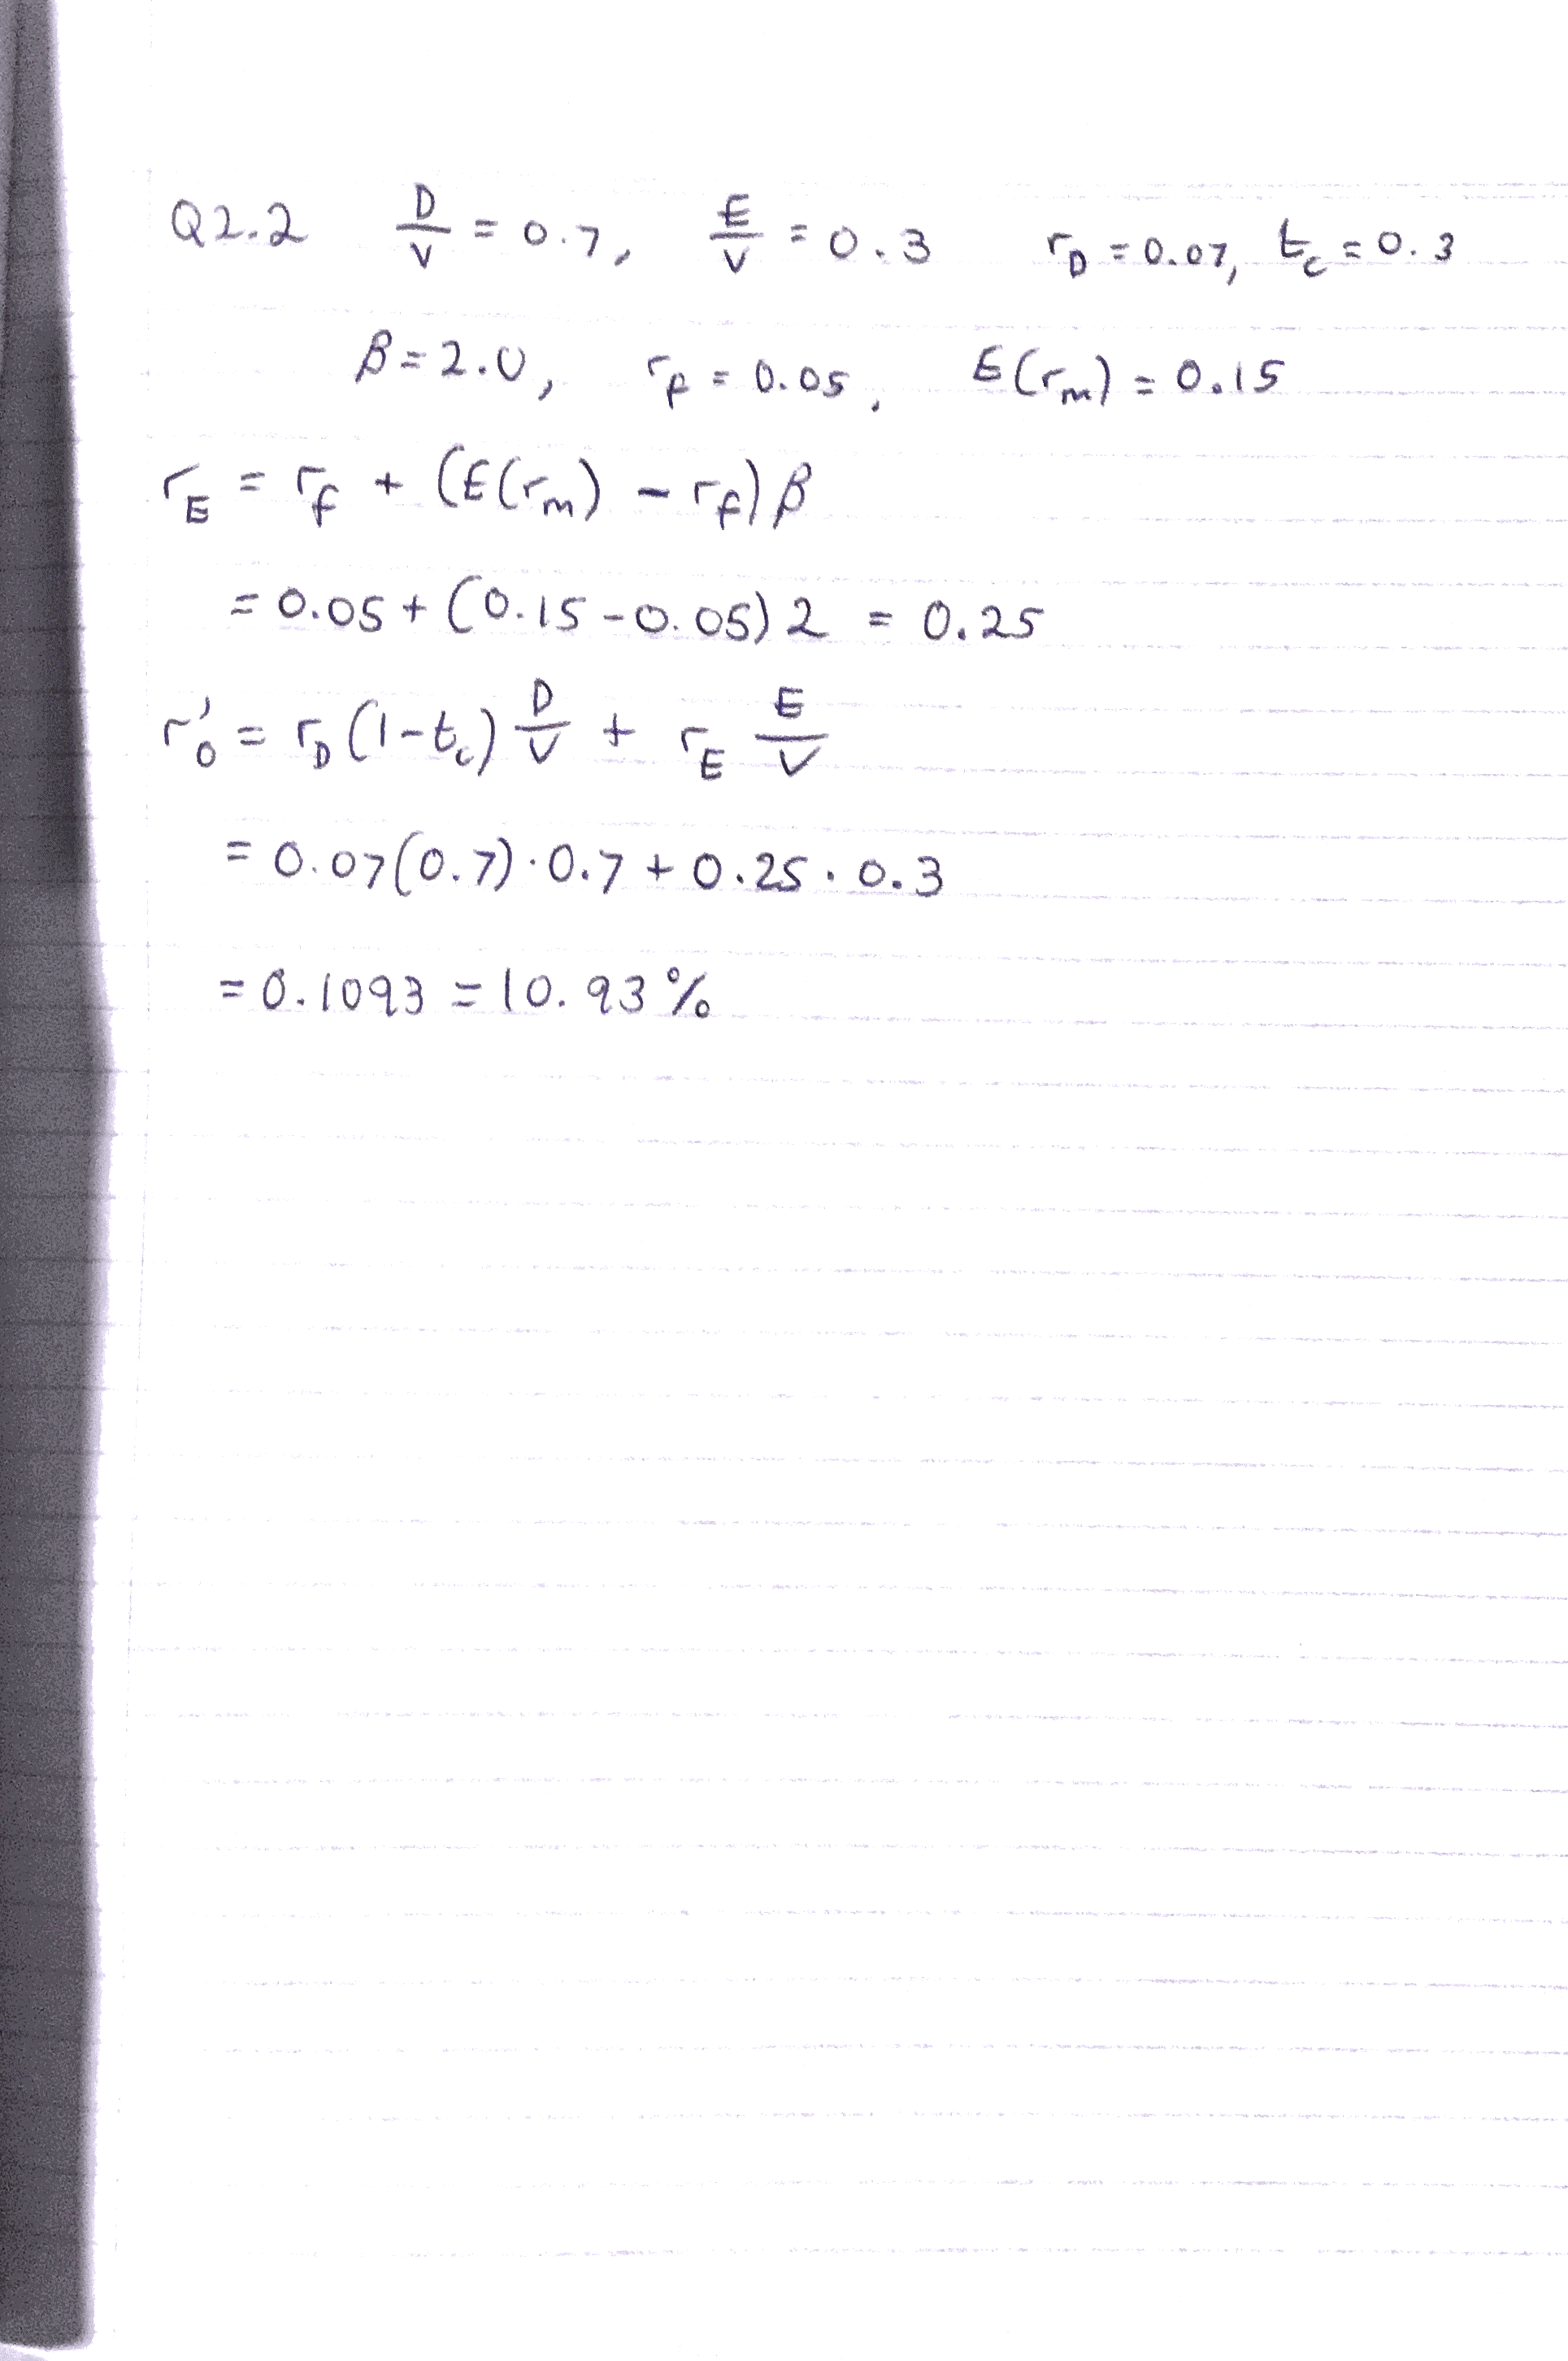 Q2.2 D/V = 0.7, E/V = 0.3 r_D = 0.07, t_c = 0.3
β = 2.0, r_f = 0.05, E(r_m) = 0.15
r_E = r_f + (E(r_m) - r_f) β
= 0.05 + (0.15 - 0.05) 2 = 0.25
r'_0 = r_D (1 - t_c) D/V + r_E E/V
= 0.07(0.7) · 0.7 + 0.25 · 0.3
= 0.1093 = 10.93 %